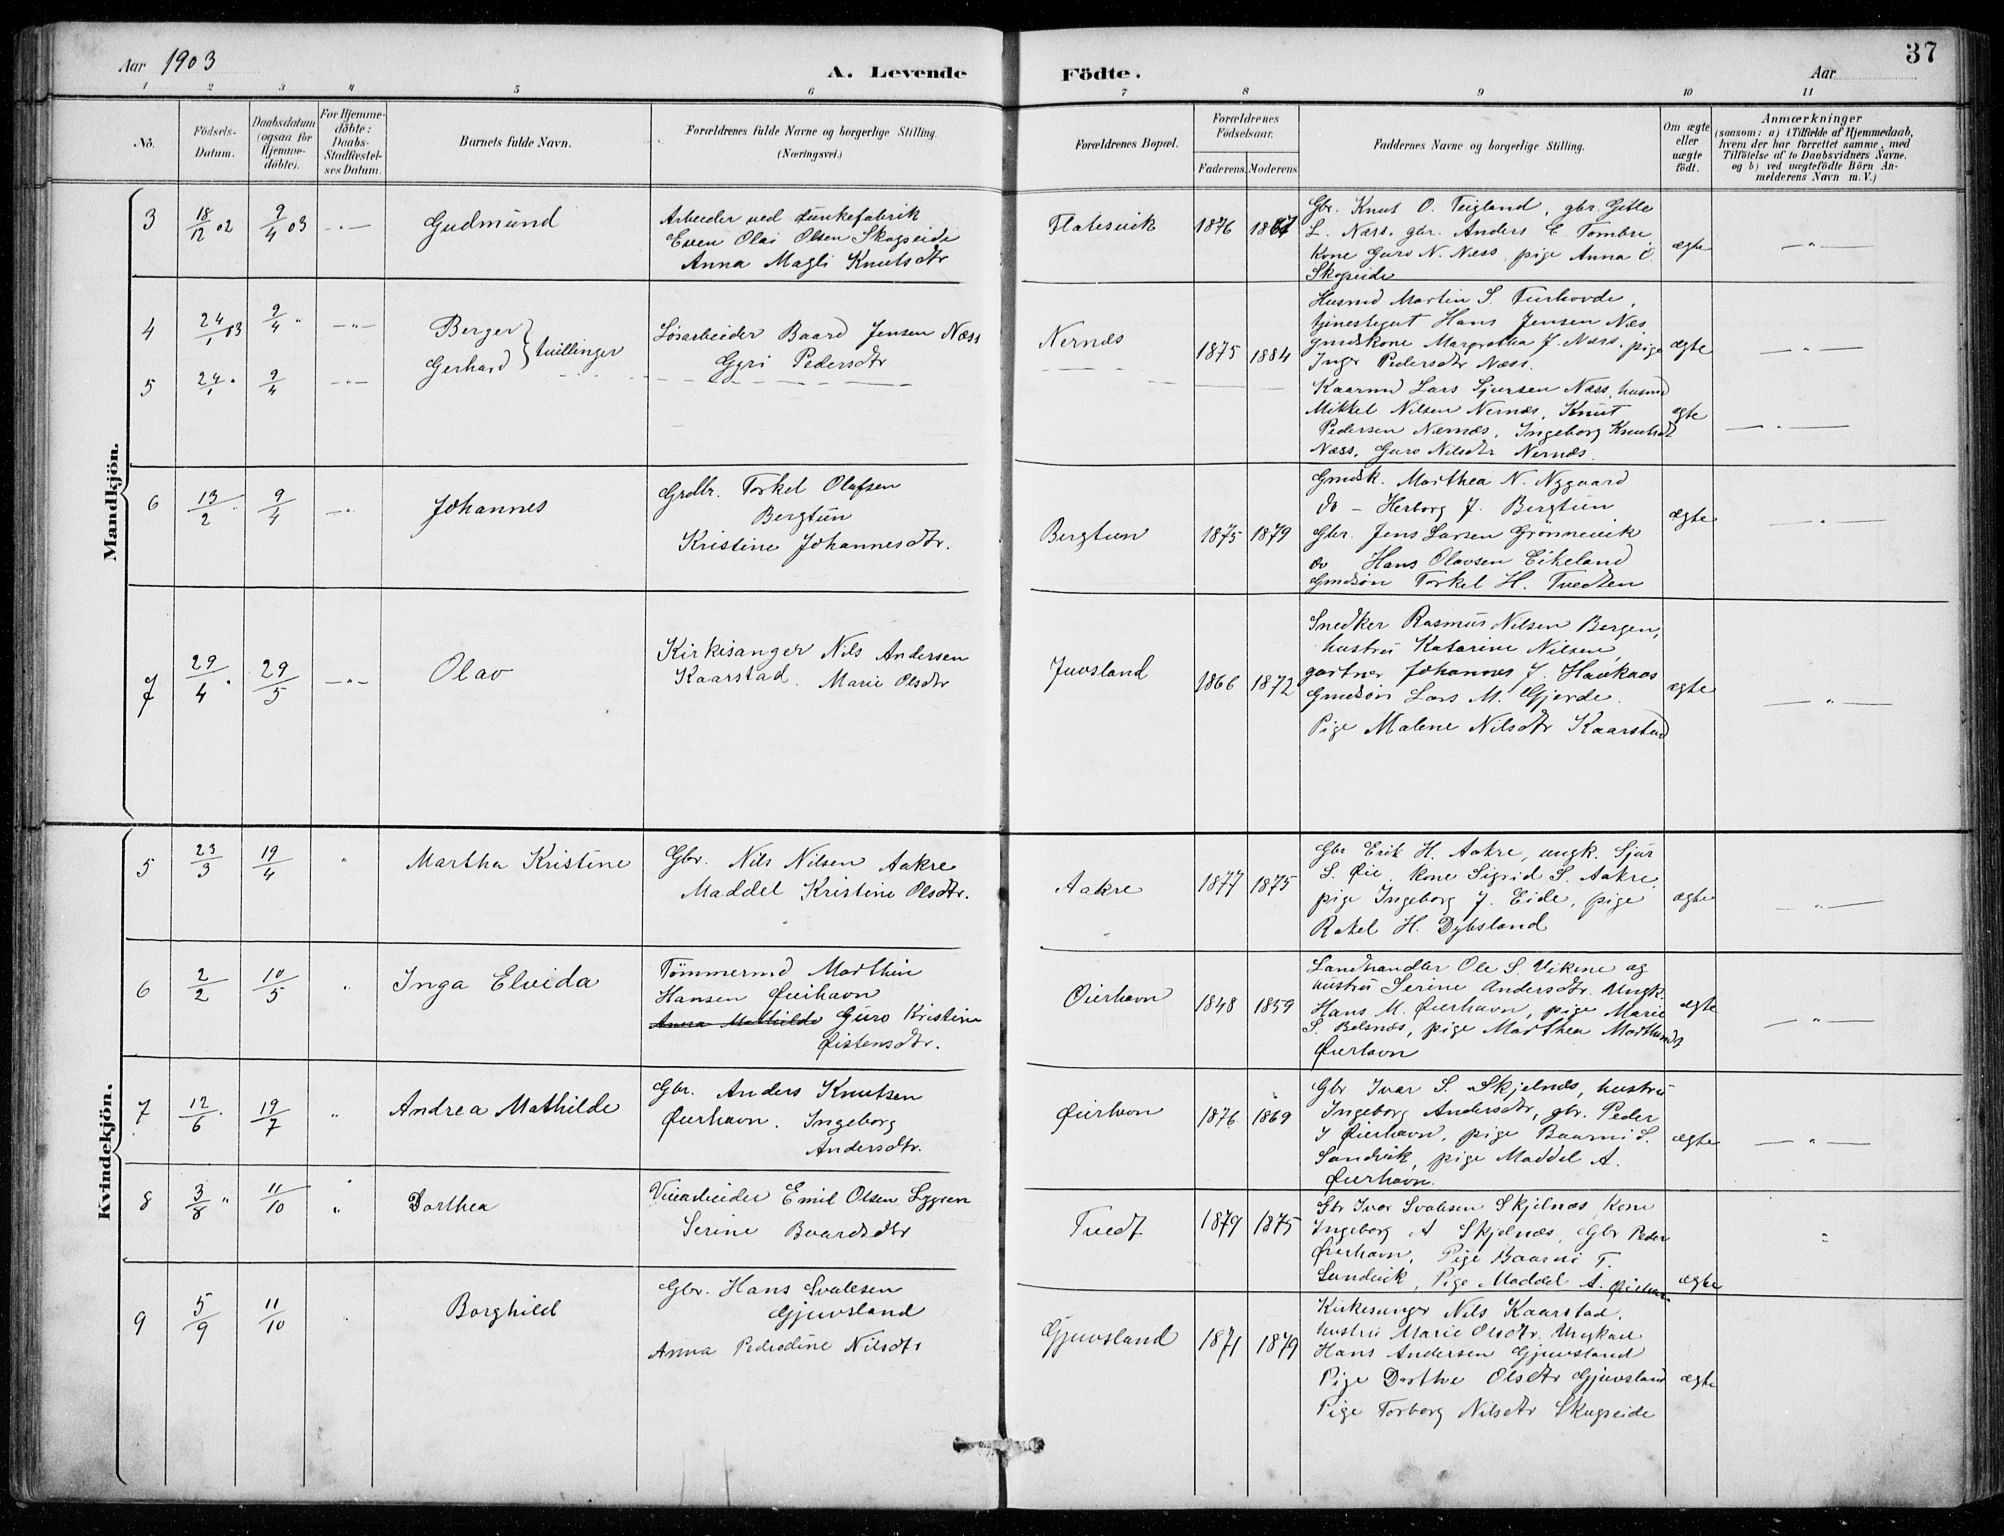 Aar 1903
A. Levende
Födte.
Aar
37
1 2 3 4 5 6 7 8 9 10 11
No.
Födsels-
Datum.
Daabsdatum
(ogsaa for
Hjemme-
döbte).
For Hjemme-
döbte:
Daabs-
Stadfæstel-
ses Datum.
Barnets fulde Navn.
Forældrenes fulde Navne og borgerlige Stilling.
(Næringsvei.)
Forældrenes Bopæl.
Forældrenes
Födselsaar.
Faderens. Moderens
Faddernes Navne og borgerlige Stilling.
Om ægte
eller
uægte
födt.
Anmærkninger
(saasom: a) i Tilfælde af Hjemmedaab,
hvem der har forrettet samme, med
Tilföielse af to Daabsvidners Navne,
og b) ved uægtefödte Börn An-
melderens Navn m. V.)
Mandkjön.
3
18/12 02
9/4 03
—"—
Gudmund
Arbeider ved tunkefabrik
Even Olai Olsen Skogseide
Anna Magli Knutsdtr
Flatesvik
1876
Gbr. Knut O. Teigland, gbr. Gitle
L. Næss, gbr. Anders E. Tombre
Kone Guro N. Næss, pige Anna
Skogseide
ægte
—"—
4
24/1 03
9/4 "
—"—
Berger
Gerhard } tvillinger
Løsarbeider Baard Jensen Næss
Gyri Pedersdtr
Nernæs
1875 1884
Husmd Martin S. Furhovde,
tjenestegut Hans Jensen Næs,
gmdskone Margretha J. Næss, pige
Inger Pedersdtr Næss.
ægte
—"—
5
24/1 "
9/4
—"—
Kaarmd Lars Sjursen Næss, husmd
Mikkel Nilsen Nernæs, Knut
Pedersen Nærnæs, Ingeborg Knutsdt
Næss, Guro Nilsdtr Nernæs.
ægte
—"—
6
13/2 "
9/4
—"—
Johannes
Grdbr. Torkel Olafsen
Bergtun
Kristine Johannesdtr.
Bergtun
1875 1879
Gmdsk. Marthea N. Nygaard
do — Herborg J. Bergtun
Gbr. Jens Larsen Grönnevik
do Hans Olavsen Eikeland
Gmdsön Torkel H. Tvedten
ægte
—"—
7
29/4 "
29/5
—"—
Olav
Kirkesanger Nils Andersen
Kaarstad. Marie Olsdtr
Juvsland
1866 1872
Snedker Rasmus Nilsen Bergen,
hustru Katarine Nilsen
gartner Johannes J. Haukaas
Gmdsön Lars M. Gjerde.
Pige Malene Nilsdtr Kaarstad
ægte
—"—
Kvindekjön.
5
23/3
19/4
"
Martha Kristine
Gbr. Nils Nilsen Aakre
Maddel Kristine Olsdtr.
Aakre
1877 1875
Gbr Erik H. Aakre, ungk. Sjur
S. Øie, kone Sigrid S. Aakre,
pige Ingeborg J. Eide, pige
Rakel H. Dybsland
ægte
—"—
6
2/2
10/5
"
Inga Elvida
Tömmermd Marthin
Hansen Øierhavn
Anna Mathilde Guro Kristine
Øistensdtr.
Øierhavn
1848 1859
Landhandler Ole S. Vikene og
hustru Serine Andersdtr. Ungk.
Hans M. Øierhavn, pige Marie
S. Belsnæs, pige Marthea Marthinsdt
Øierhavn
ægte
—"—
7
12/6 "
19/7
"
Andrea Mathilde
Gbr. Anders Knutsen
Øierhavn. Ingeborg
Andersdtr.
Øierhavn
1876 1869
Gbr Ivar S. Skjelnæs, hustru
Ingeborg Andersdtr, gbr. Peder
J Øierhavn, pige Baarni S.
Sandvik, pige Maddel A.
Øierhavn.
ægte
—"—
8
3/8 "
11/10
"
Dorthea
Veiarbeider Emil Olsen Lygren
Serine Baardsdtr
Tvedt
1879 1875
Gbr Ivar Svalesen Skjelnæs Kone
Ingeborg A Skjelnæs, Gbr Peder
Øierhavn, Pige Baarni T.
Sandvik, Pige Maddel A. Øierhav
ægte
"
9
5/9
11/10
"
Borghild
Gbr. Hans Svalesen
Gjuvsland
Anna Pedrodine Nilsdtr
Gjuvsland
1871 1879
Kirkesanger Nils Kaarstad,
hustru Marie Olsdtr. Ungkarl
Hans Andersen Gjuvsland
Pige Dorthe Olsdtr Gjuvsland
Pige Torborg Nilsdtr Skogseide
ægte